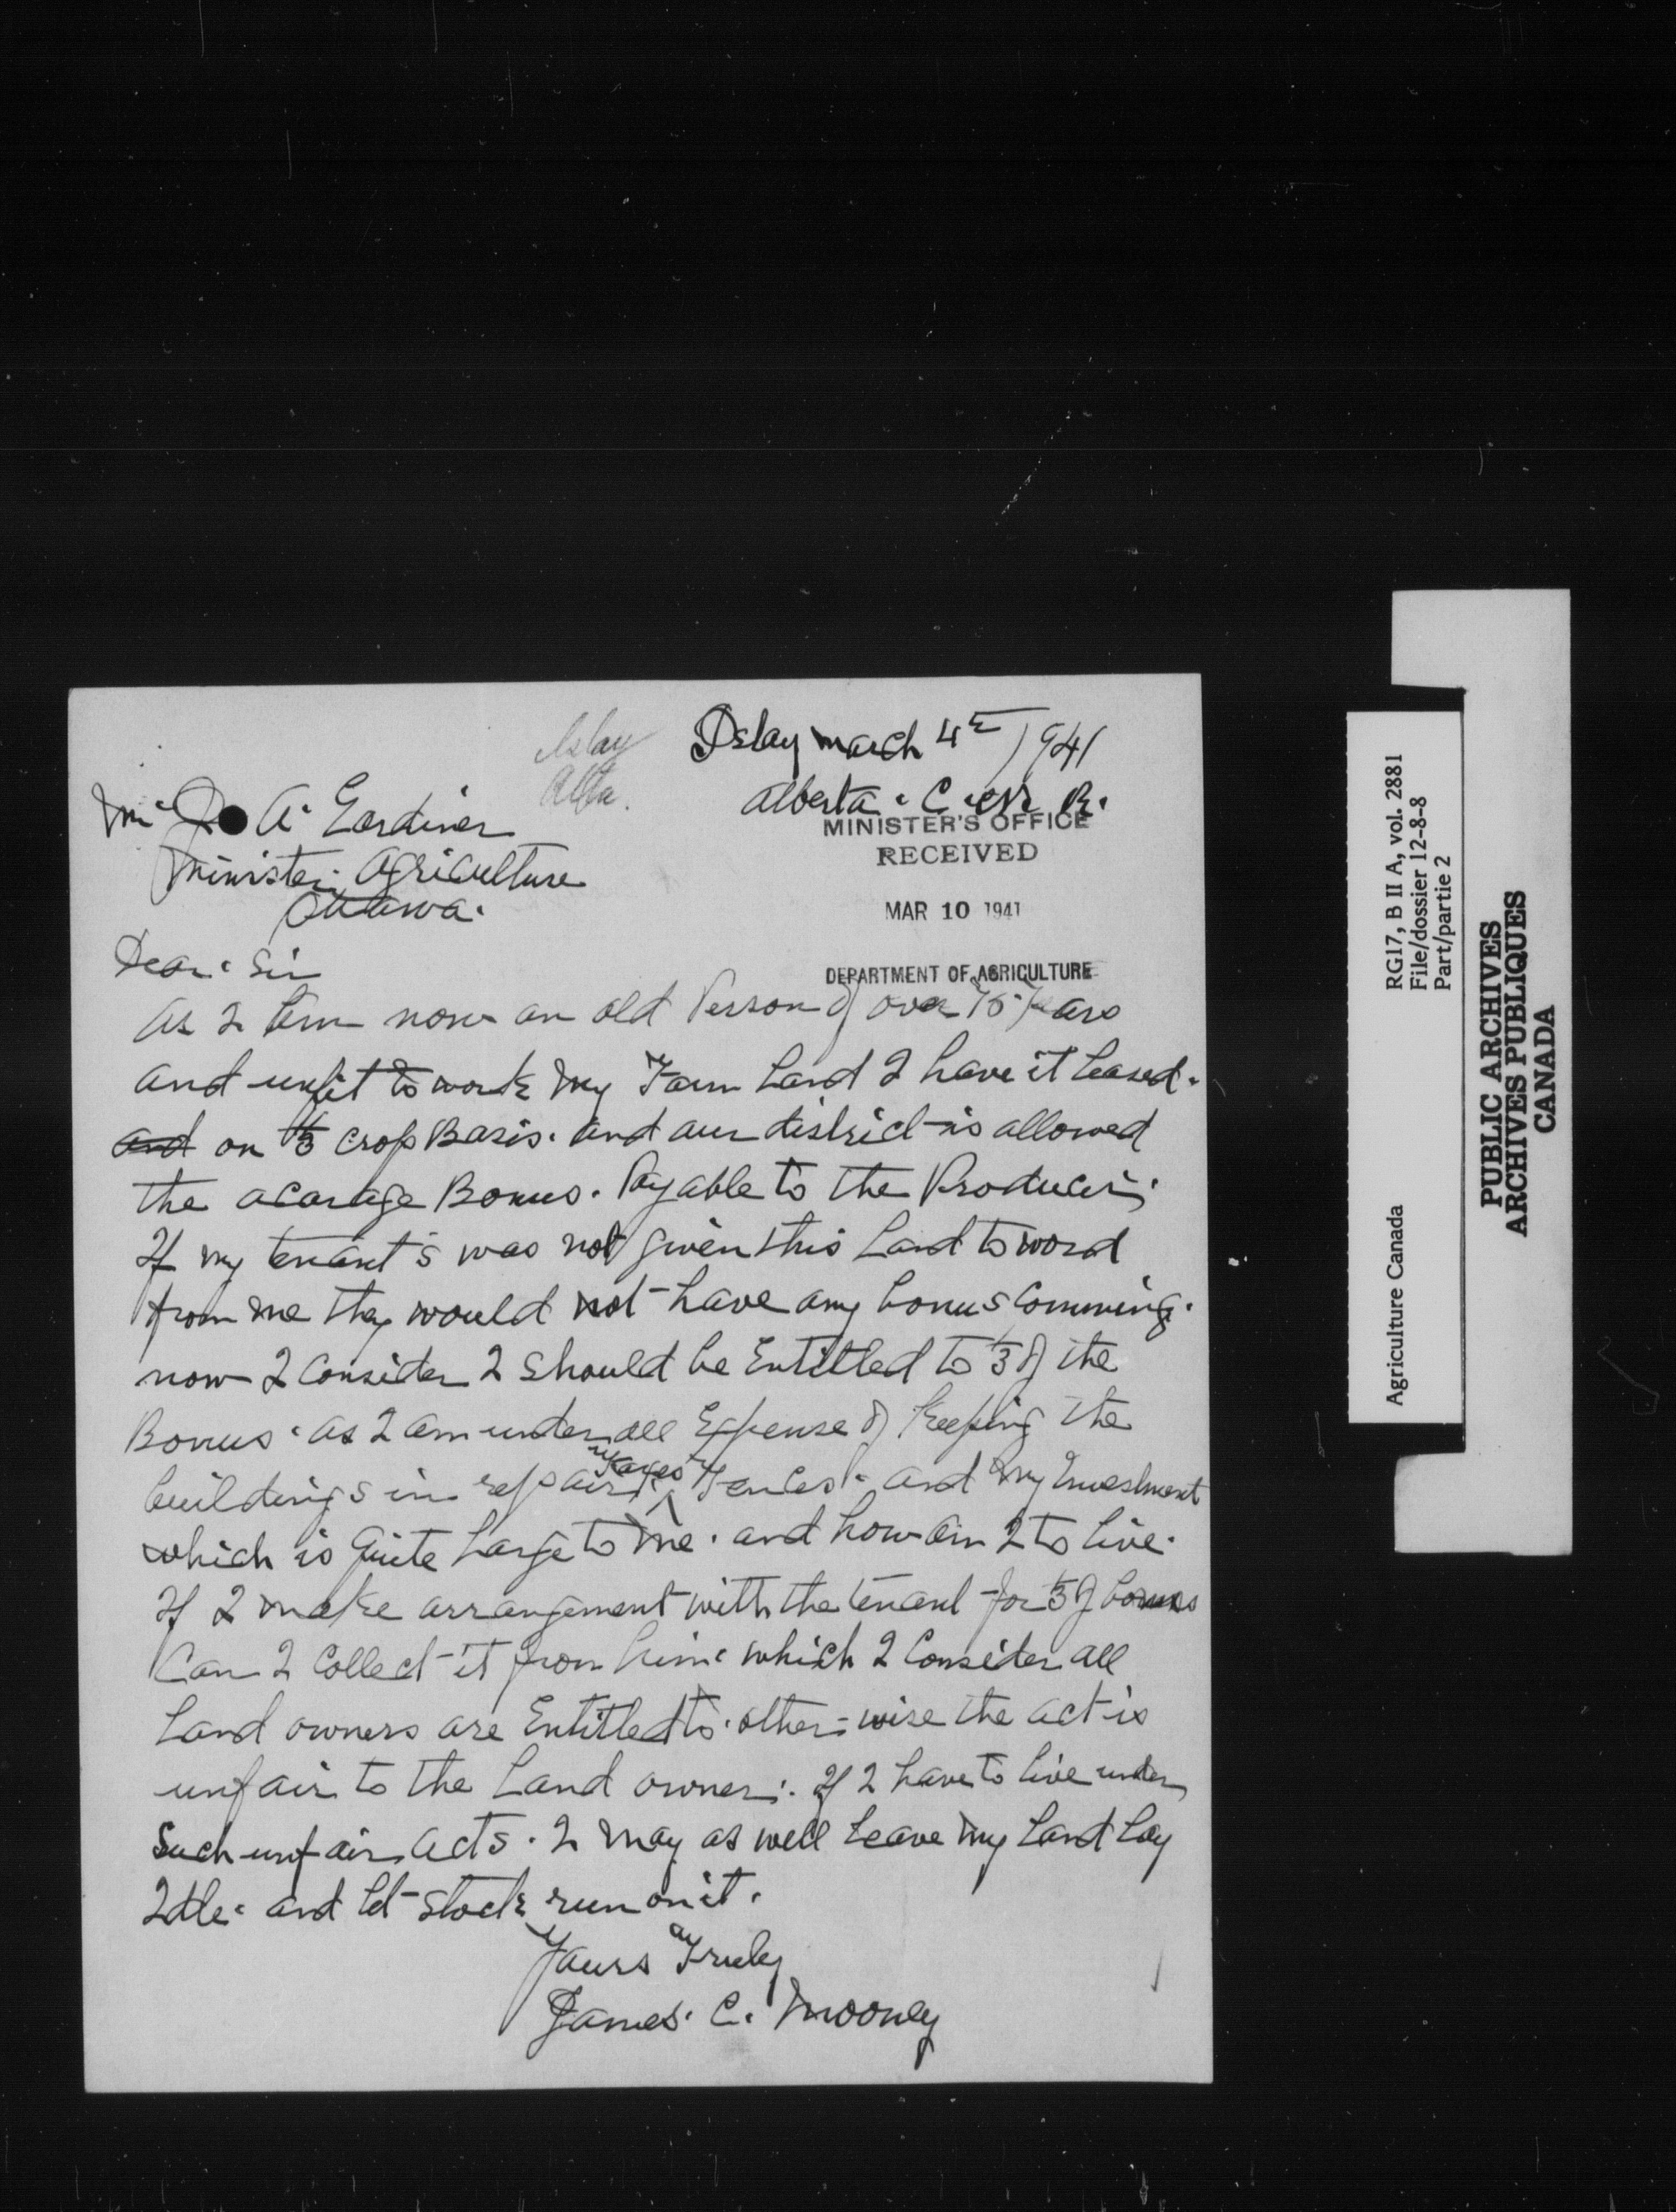 Islay
Alta.
Islay March 4th 1941
Alberta. C. N. R.
Mr J. A. Gardiner
Minister. Agriculture
Ottawa.
MINISTER'S OFFICE
RECEIVED
MAR 10 1941
DEPARTMENT OF AGRICULTURE
Dear. Sir
As I am now an old Person of over 75 years
and unfit to work my Farm Land I have it Leased.
and on 1/3 crop Basis. and our district is allowed
the acarage Bonus. Payable to the Producer.
If my tenant's was not given this Land to word
from me they would not have any bonus comming.
now I Consider I should be Entitled to 1/3 of the
Bonus. as I am under all Expense of Keeping the
buildings in repair Taxes Fences. and my Investment
which is Quite Large to me. and how am I to live.
If I make arrangement with the tenant for 1/3 of bonus
Can I Collect it from him. which I Consider all
Land owners are Entitled to. other-wise the act is
unfair to the Land owner. If I have to live under
such unfair acts. I may as well Leave my Land Lay
Idle. and let stock run on it.
Yours Truly
James. C. Mooney
RG17, B II A, vol. 2881
File/dossier 12-8-8
Part/partie 2
Agriculture Canada
PUBLIC ARCHIVES
ARCHIVES PUBLIQUES
CANADA